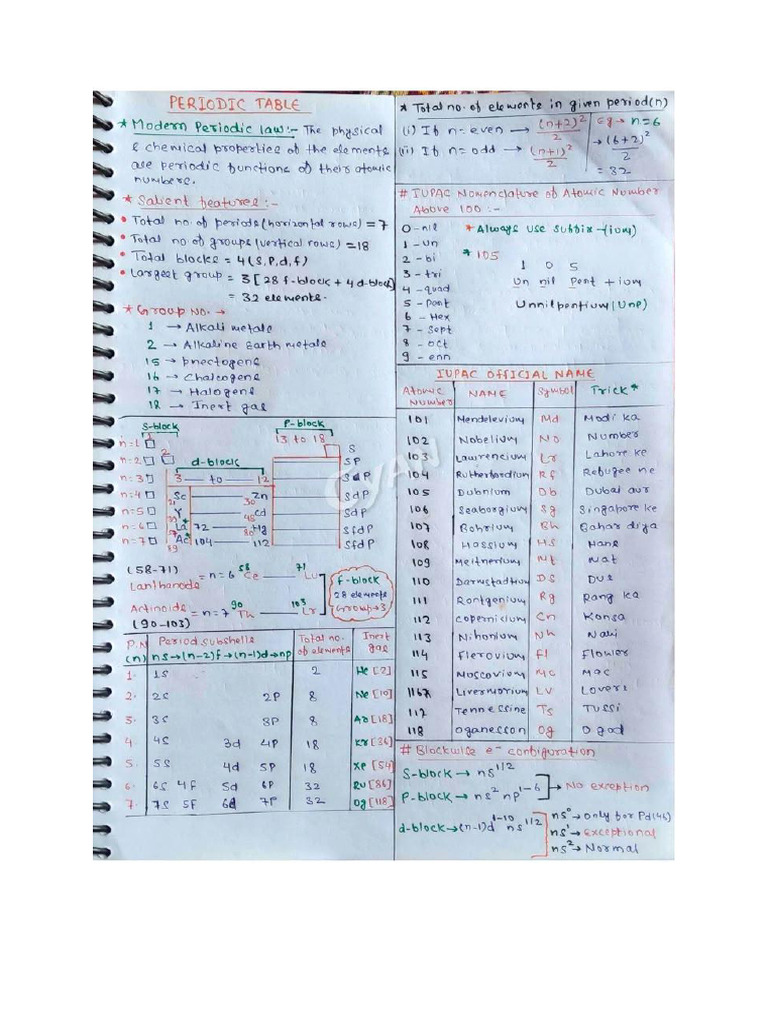 PERIODIC TABLE
* Modern Periodic law:- The physical
& chemical properties of the elements
are periodic functions of their atomic
numbers.
* Salient features:-
• Total no. of periods (horizontal rows) = 7
• Total no of groups (vertical rows) = 18
• Total blocks = 4 (s, p, d, f)
• Largest group = 3 [28 f-block + 4 d-block]
= 32 elements.
* Group No. →
1 → Alkali metals
2 → Alkaline Earth metals
15 → pnectogens
16 → Chalcogens
17 → Halogens
18 → Inert gas
S-block
P-block
13 to 18
n=1
S
n=2
d-block
SP
n=3
3 — to — 12
n=4
Sc
21
30
Zn
SdP
n=5
Y
39
48
Cd
SdP
n=6
57
La* 72
80
Hg
SfdP
n=7
89
Ac* 104
112
SfdP
(58-71)
Lanthanoids = n=6 58 Ce 71 Lu
Actinoids = n=7 90 Th 103 Lr
(90-103)
f-block
28 elements
Group→3
P.N (n)
Period subshells
ns→(n-2)f→(n-1)d→np
Total no. of elements
Inert gas
1. 1S 2 He [2]
2. 2S 2P 8 Ne [10]
3. 3S 3P 8 Ar [18]
4. 4S 3d 4P 18 Kr [36]
5. 5S 4d 5P 18 Xe [54]
6. 6S 4F 5d 6P 32 Rn [86]
7. 7S 5F 6d 7P 32 Og [118]
* Total no. of elements in given period(n)
(i) If n = even → (n+2)²/2
(ii) If n = odd → (n+1)²/2
Eg → n=6
→ (6+2)²/2
= 32
# IUPAC Nomenclature of Atomic Number
Above 100 :-
0 - nil
* Always use suffix -(ium)
1 - un
2 - bi
* 105
3 - tri
1 0 5
4 - quad
Un nil pent + ium
5 - pent
Unnilpentium (Unp)
6 - Hex
7 - Sept
8 - oct
9 - enn
IUPAC OFFICIAL NAME
Atomic Number NAME Symbol Trick*
101 Mendelevium Md Modi ka
102 Nobelium No Number
103 Lawrencium Lr Lahore ke
104 Rutherfordium Rf Refugee ne
105 Dubnium Db Dubai aur
106 Seaborgium Sg Singapore ke
107 Bohrium Bh Bahar diya
108 Hassium Hs Hans
109 Meitnerium Mt Mat
110 Darmstadtium DS Dus
111 Rontgenium Rg Rang ka
112 copernicium Cn Konsa
113 Nihonium Nh Nahi
114 Flerovium Fl Flower
115 Moscovium Mc Mac
116 Livermorium LV Lovers
117 Tennessine Ts Tussi
118 oganesson Og O god
# Blockwise e⁻ configuration
S-block → ns¹,²
P-block → ns² np¹⁻⁶
→ No exception
d-block → (n-1)d¹⁻¹⁰ ns¹,²
ns⁰ → only for Pd(46)
ns¹ → exceptional
ns² → Normal
GYAN